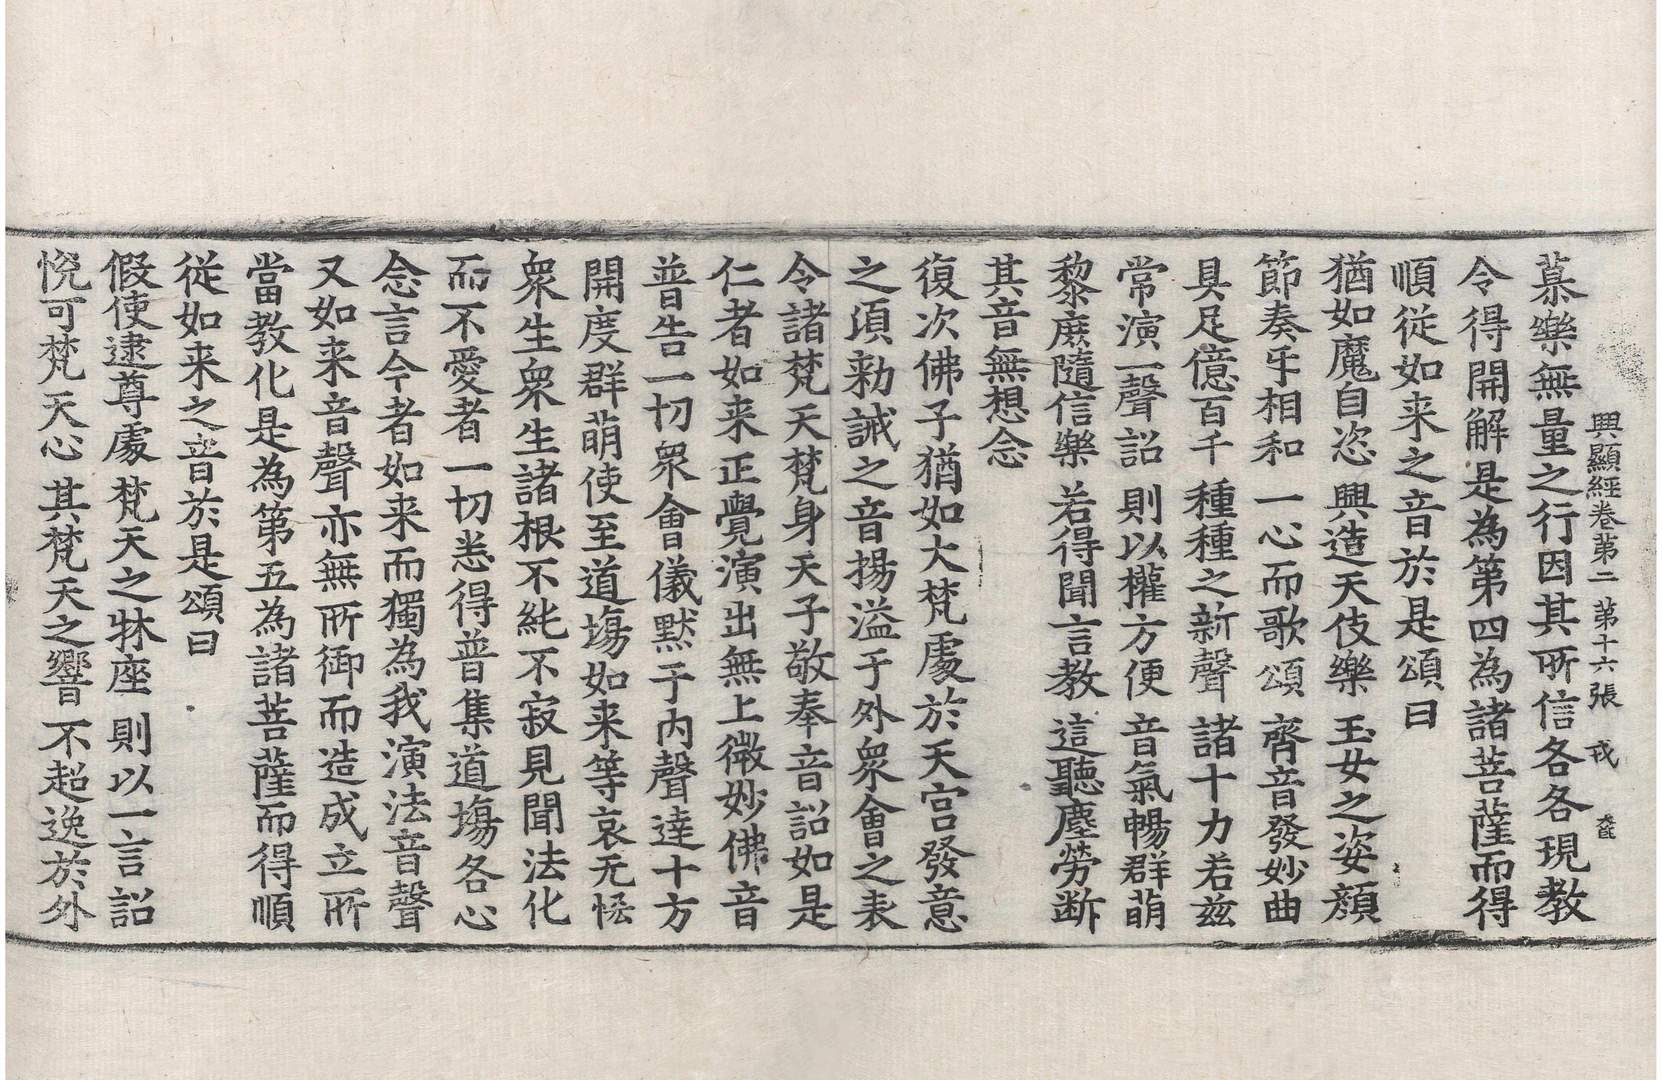 興顯經卷第二 第十六張 戎
慕樂無量之行因其所信各各現教
令得開解是為第四為諸菩薩而得
順從如来之音於是頌曰
猶如魔自恣 興造天伎樂 玉女之姿顏
節奏乎相和 一心而歌頌 齊音發妙曲
具足億百千 種種之新聲 諸十力若兹
常演一聲詔 則以權方便 音氣暢群萌
黎庶隨信樂 若得聞言教 這聽塵勞断
其音無想念
復次佛子猶如大梵處於天宮發意
之湏勑誡之音揚溢于外衆會之表
令諸梵天梵身天子敬奉音詔如是
仁者如来正覺演出無上微妙佛音
普告一切衆會儀默于内聲達十方
開度群萌使至道塲如来等哀无恡
衆生衆生諸根不純不寂見聞法化
而不愛者一切恙得普集道塲各心
念言今者如来而獨為我演法音聲
又如来音聲亦無所御而造成立所
當教化是為第五為諸菩薩而得順
從如来之音於是頌曰
假使逮尊處 梵天之牀座 則以一言詔
悅可梵天心 其梵天之響 不超逸於外